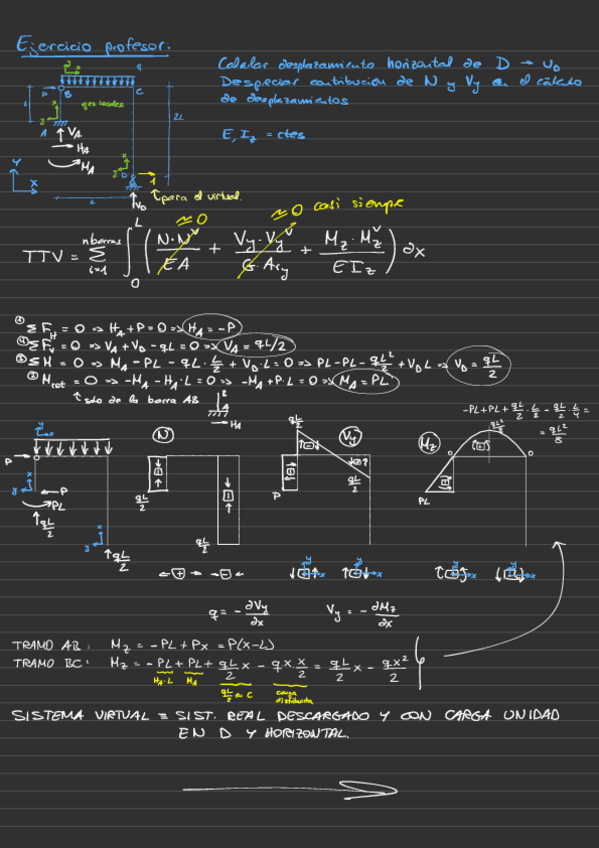 Ejercicio profesor.
Calcular desplazamiento horizontal de D → u_D
Despreciar contribución de N y Vy en el cálculo
de desplazamientos
E, I_z = ctes
P B C q
ejes locales
L 2L
A V_A
H_A
M_A
Y X
D 1
L V_D para el virtual.
≈ 0 ≈ 0 casi siempre
TTV = Σ_{i=1}^{nbarras} ∫_0^L ( N·N^v / EA + Vy·Vy^v / G·A_ry + Mz·Mz^v / EIz ) ∂x
① ΣF_H = 0 => H_A + P = 0 => H_A = -P
④ ΣF_V = 0 => V_A + V_D - qL = 0 => V_A = qL/2
③ ΣM = 0 => M_A - PL - qL · L/2 + V_D · L = 0 => PL - PL - qL²/2 + V_D L => V_D = qL/2
② M_rot = 0 => -M_A - H_A·L = 0 => -M_A + P·L = 0 => M_A = PL
↑ solo de la barra AB A B H_A
-PL + PL + qL/2 · L/2 - qL/2 · L/4 =
= qL²/8
N Vy Mz
qL/2 qL²/8
P P PL qL/2 qL/2
qL/2 qL/2
P qL/2
PL
q = - ∂Vy/∂x Vy = - ∂Mz/∂x
TRAMO AB: Mz = -PL + Px = P(x-L)
TRAMO BC: Mz = -PL + PL + qL/2 x - qx · x/2 = qL/2 x - qx²/2
H_A·L M_A qL/2 en C carga distribuida
SISTEMA VIRTUAL ≡ SIST. REAL DESCARGADO Y CON CARGA UNIDAD
EN D Y HORIZONTAL.